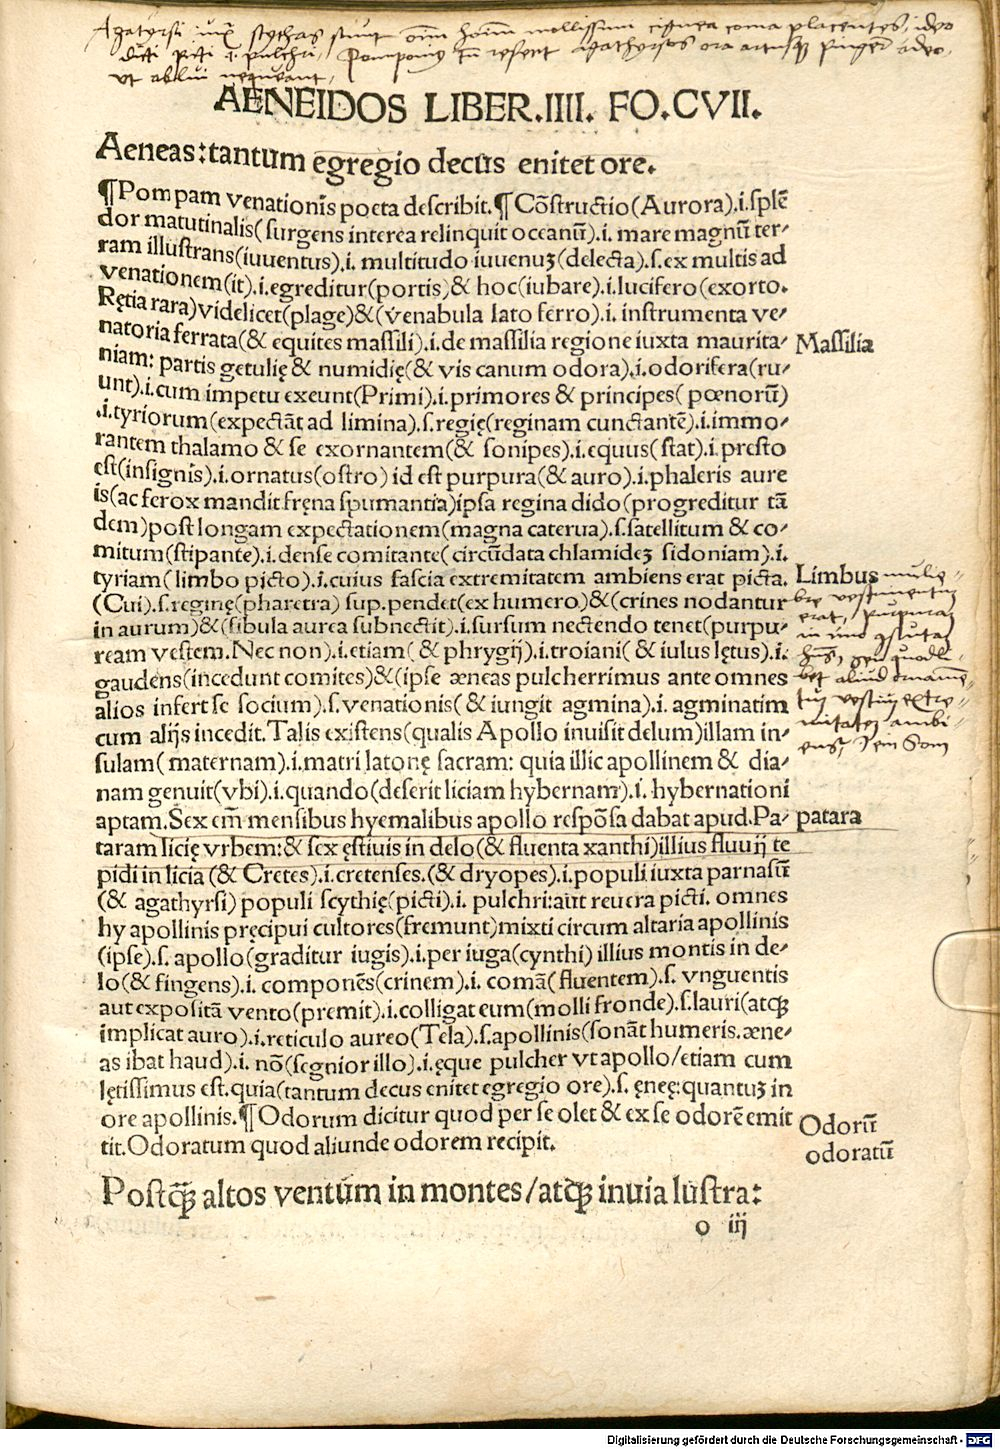 Agatyrsi iuxͣ scythas sunt om̄ hoīm mollissimi cisuea coma placentes, ideo
dicti picti .i. pulchri, Pomponiꝰ tn̄ refert agathyrsos ora artusqꝫ pinger adeo,
vt ablui nequeant,
AENEIDOS LIBER.IIII. FO.CVII.
Aeneas:tantum egregio decus enitet ore.
¶Pompam venationis poeta describit.¶Cōstructio(Aurora).i.splē
dor matutinalis(surgens interea relinquit oceanū).i. mare magnū ter-
ram illustrans(iuuentus).i. multitudo iuuenuꝫ(delecta).s.ex multis ad
venationem(it).i.egreditur(portis)& hoc(iubare).i.lucifero(exorto.
Rętia rara)videlicet(plage)&(venabula lato ferro).i. instrumenta ve-
natoria ferrata(& equites massili).i.de massilia regione iuxta maurita-
Massilia
niam: partis getulię & numidię(& vis canum odora).i.odorifera(ru-
unt).i.cum impetu exeunt(Primi).i.primores & principes( pœnorū)
.i.tyriorum(expectāt ad limina).s.regię(reginam cunctantē).i.immo-
rantem thalamo & se exornantem(& sonipes).i.equus(stat).i.presto
est(insignis).i.ornatus(ostro) id est purpura(& auro).i.phaleris aure
is(ac ferox mandit fręna spumantia)ipsa regina dido(progreditur tā
dem)post longam expectationem(magna caterua).s.satellitum & co-
mitum(stipante).i.dense comitante( circūdata chlamideꝫ sidoniam).i.
tyriam(limbo picto).i.cuius fascia extremitatem ambiens erat picta.
Limbus mulie-
bre vestimentuꝫ
erat, purpuraꝫ
in imo
quodli-
bet aliud ornamē-
tuꝫ vestiuꝫ extre-
mitateꝫ ambi-
ens,
(Cui).s.reginę(pharetra) sup.pendet(ex humero)&(crines nodantur
in aurum)&(fibula aurea subnectit).i.sursum nectendo tenet(purpu-
ream vestem.Nec non).i.etiam( & phrygij).i.troiani( & iulus lętus).i.
gaudens(incedunt comites)&(ipse æneas pulcherrimus ante omnes
alios infert se socium).s.venationis( & iungit agmina).i. agminatim
cum alijs incedit.Talis existens(qualis Apollo inuisit delum)illam in-
sulam( maternam).i.matri latonę sacram: quia illic apollinem & dia-
nam genuit(vbi).i.quando(deserit liciam hybernam).i. hybernationi
aptam.Sex em̄ mensibus hyemalibus apollo respōsa dabat apud.Pa-
patara
taram licię vrbem:& sex ęstiuis in delo(& fluenta xanthi)illius fluuij te
pidi in licia (& Cretes).i.cretenses.(& dryopes).i.populi iuxta parnasū
(& agathyrsi) populi scythię(picti).i. pulchri:aut reuera picti. omnes
hy apollinis pręcipui cultores(fremunt)mixti circum altaria apollinis
(ipse).s. apollo(graditur iugis).i.per iuga(cynthi) illius montis in de-
lo(& fingens).i. componēs(crinem).i. comā( fluentem).s. vnguentis
aut expositā vento(premit).i.colligat eum(molli fronde).s.lauri(atqꝫ
implicat auro).i.reticulo aureo(Tela).s.apollinis(sonāt humeris.æne-
as ibat haud).i. nō(segnior illo).i.ęque pulcher vt apollo/etiam cum
lętissimus est.quia(tantum decus enitet egregio ore).s. ęneę:quantuꝫ in
ore apollinis.¶Odorum dicitur quod per se olet & ex se odorē emit
Odorū
tit.Odoratum quod aliunde odorem recipit.
odoratū
Postqꝫ altos ventum in montes/atqꝫ inuia lustra:
o iij
Digitalisierung gefördert durch die Deutsche Forschungsgemeinschaft - DFG